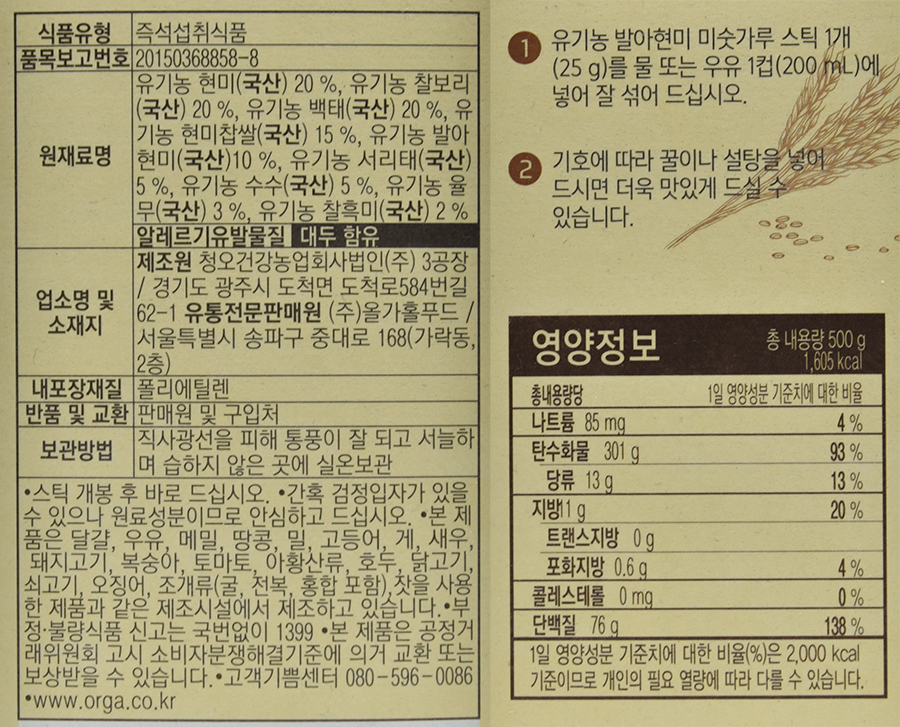 식품유형 즉석섭취식품
품목보고번호 20150368858-8
원재료명
유기농 현미(국산) 20 %, 유기농 찰보리
(국산) 20 %, 유기농 백태(국산) 20 %, 유
기농 현미찹쌀(국산) 15 %, 유기농 발아
현미(국산)10 %, 유기농 서리태(국산)
5 %, 유기농 수수(국산) 5 %, 유기농 율
무(국산) 3 %, 유기농 찰흑미(국산) 2 %
알레르기유발물질 대두 함유
업소명 및
소재지
제조원 청오건강농업회사법인(주) 3공장
/ 경기도 광주시 도척면 도척로584번길
62-1 유통전문판매원 (주)올가홀푸드 /
서울특별시 송파구 중대로 168(가락동,
2층)
내포장재질 폴리에틸렌
반품 및 교환 판매원 및 구입처
보관방법
직사광선을 피해 통풍이 잘 되고 서늘하
며 습하지 않은 곳에 실온보관
•스틱 개봉 후 바로 드십시오. •간혹 검정입자가 있을
수 있으나 원료성분이므로 안심하고 드십시오. •본 제
품은 달걀, 우유, 메밀, 땅콩, 밀, 고등어, 게, 새우,
돼지고기, 복숭아, 토마토, 아황산류, 호두, 닭고기,
쇠고기, 오징어, 조개류(굴, 전복, 홍합 포함),잣을 사용
한 제품과 같은 제조시설에서 제조하고 있습니다.•부
정·불량식품 신고는 국번없이 1399 •본 제품은 공정거
래위원회 고시 소비자분쟁해결기준에 의거 교환 또는
보상받을 수 있습니다.•고객기쁨센터 080-596-0086
•www.orga.co.kr
1 유기농 발아현미 미숫가루 스틱 1개
(25 g)를 물 또는 우유 1컵(200 mL)에
넣어 잘 섞어 드십시오.
2 기호에 따라 꿀이나 설탕을 넣어
드시면 더욱 맛있게 드실 수
있습니다.
영양정보 총 내용량 500 g
1,605 kcal
총내용량당 1일 영양성분 기준치에 대한 비율
나트륨 85 mg 4 %
탄수화물 301 g 93 %
당류 13 g 13 %
지방11 g 20 %
트랜스지방 0 g
포화지방 0.6 g 4 %
콜레스테롤 0 mg 0 %
단백질 76 g 138 %
1일 영양성분 기준치에 대한 비율(%)은 2,000 kcal
기준이므로 개인의 필요 열량에 따라 다를 수 있습니다.